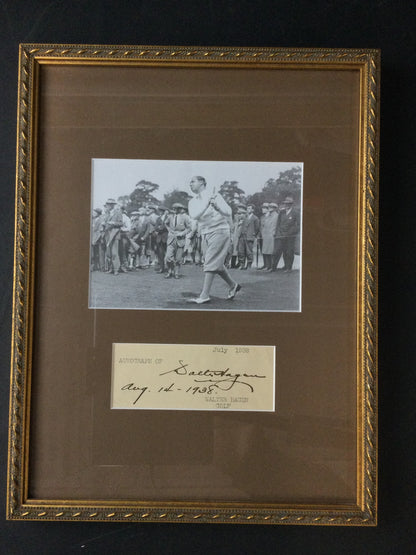 July 1938
AUTOGRAPH OF
Walter Hagen
Aug. 14 - 1938.
WALTER HAGEN
GOLF